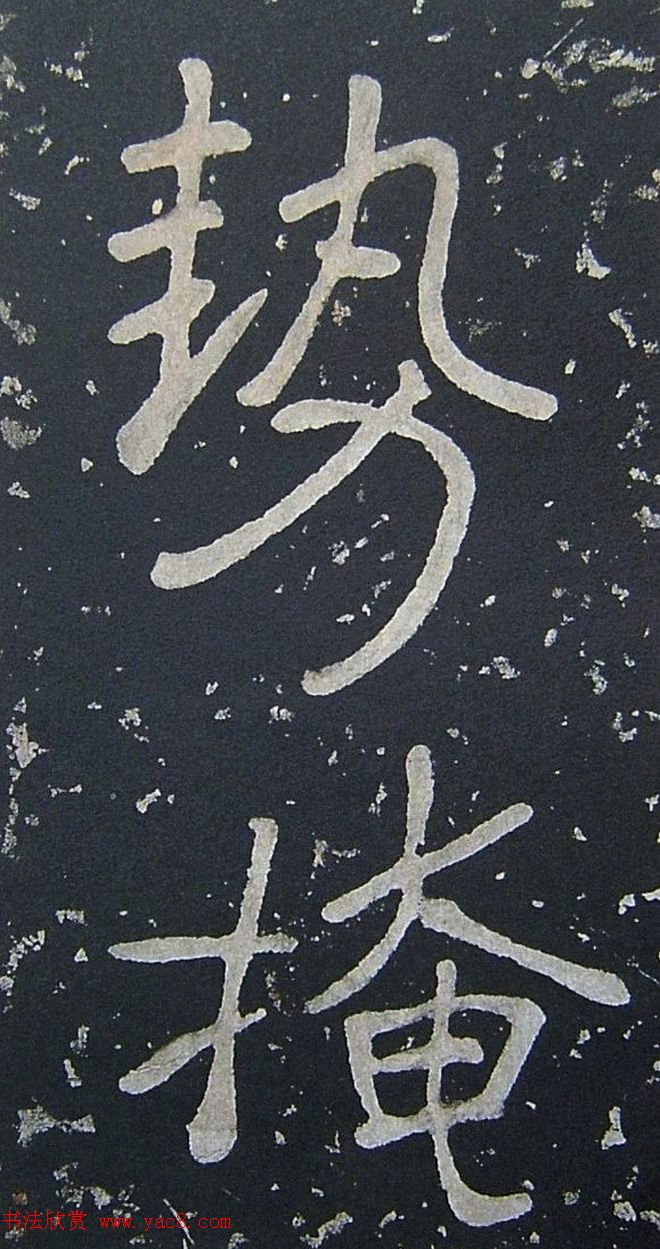 勢
掩
书法欣赏 www.yac8.com